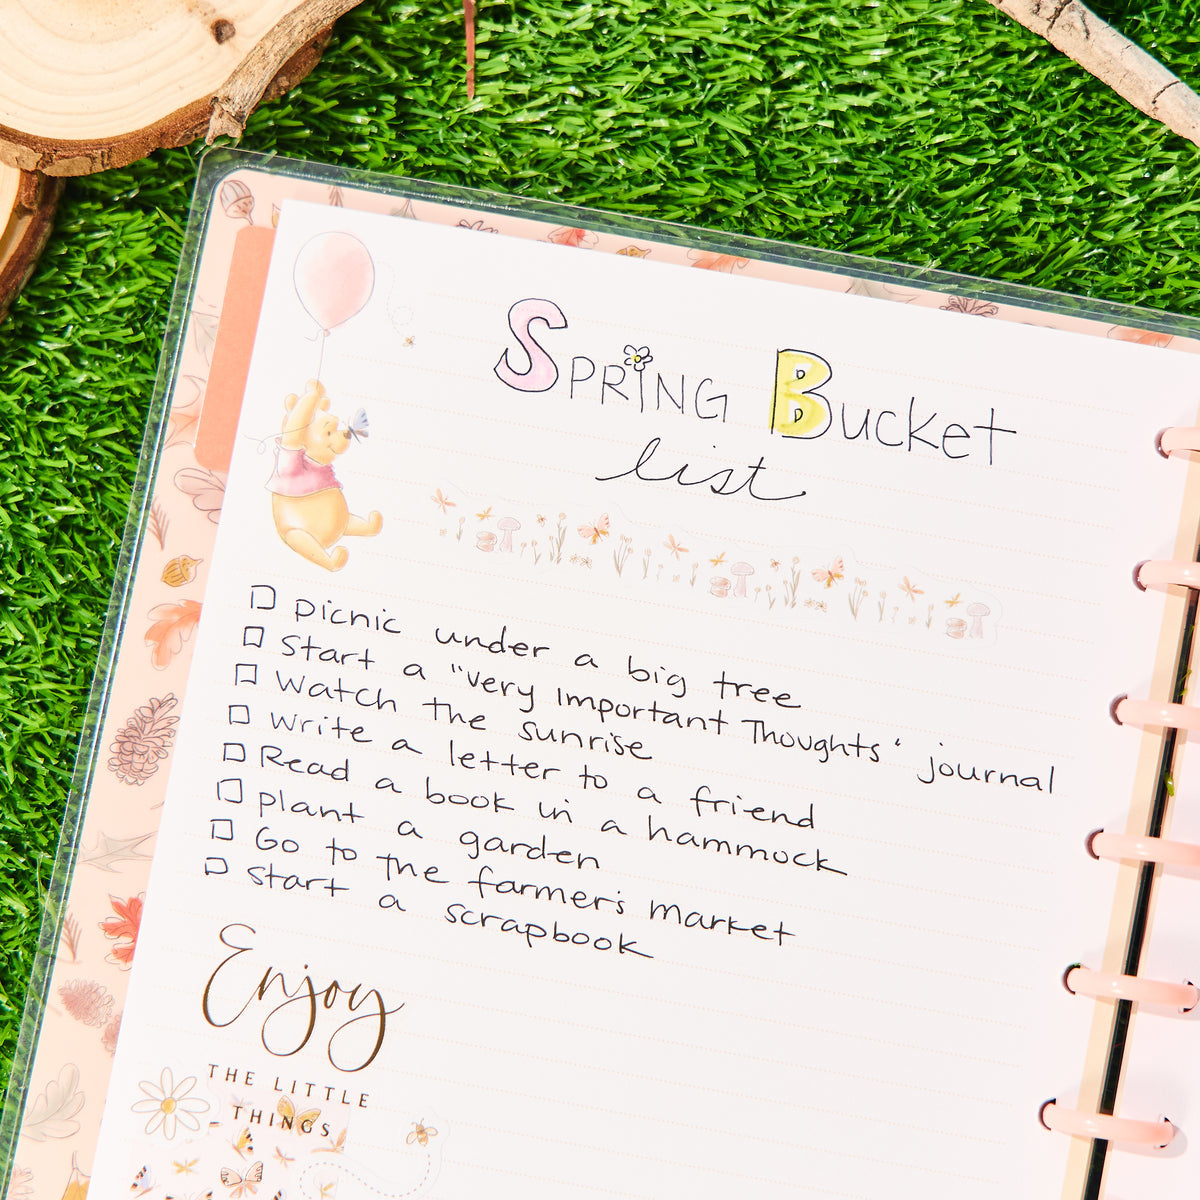 SPRING Bucket
list
picnic under a big tree
Start a "very Important Thoughts" journal
Watch the sunrise
Write a letter to a friend
Read a book in a hammock
plant a garden
Go to the farmer's market
Start a scrapbook
Enjoy
THE LITTLE
THINGS